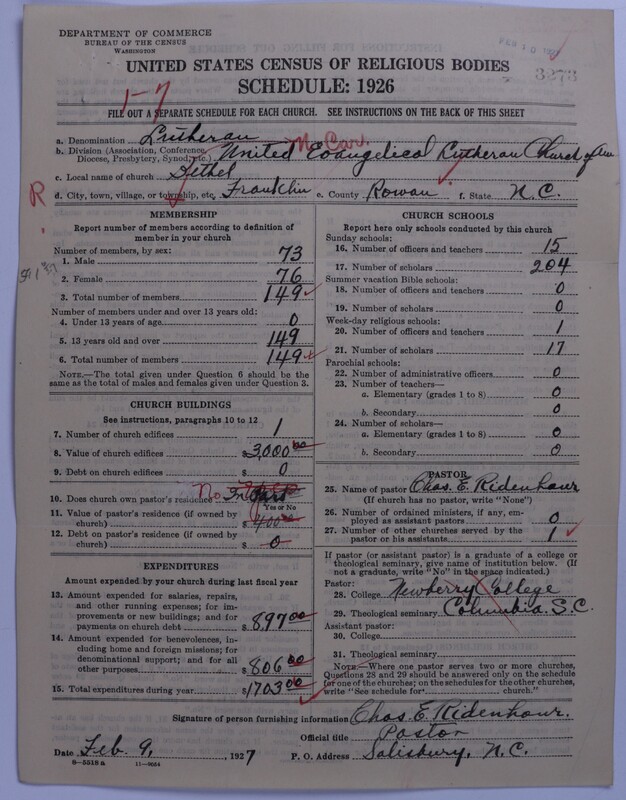 DEPARTMENT OF COMMERCE
BUREAU OF THE CENSUS
WASHINGTON
UNITED STATES CENSUS OF RELIGIOUS BODIES
SCHEDULE: 1926
3273
1-7
FILL OUT A SEPARATE SCHEDULE FOR EACH CHURCH. SEE INSTRUCTIONS ON THE BACK OF THIS SHEET
a. Denomination Lutheran
N. Car.
b. Division (Association, Conference, Diocese, Presbytery, Synod, etc.) United Evangelical Lutheran Church of Am
c. Local name of church Bethel
R
d. City, town, village, or township, etc. Franklin e. County Rowan f. State N.C.
MEMBERSHIP
Report number of members according to definition of
member in your church
Number of members, by sex:
1. Male 73
2. Female 76
3. Total number of members 149
Number of members under and over 13 years old:
4. Under 13 years of age 0
5. 13 years old and over 149
6. Total number of members 149
NOTE.—The total given under Question 6 should be
same as the total of males and females given under Question 3.
CHURCH BUILDINGS
See instructions, paragraphs 10 to 12
7. Number of church edifices 1
8. Value of church edifices $3,000 00
9. Debt on church edifices $ 0
10. Does church own pastor's residence? No In Part
Yes or No
11. Value of pastor's residence (if owned by
church) $ 400 00
12. Debt on pastor's residence (if owned by
church) $ 0
EXPENDITURES
Amount expended by your church during last fiscal year
13. Amount expended for salaries, repairs,
and other running expenses; for im-
provements or new buildings; and for
payments on church debt $ 897 00
14. Amount expended for benevolences, in-
cluding home and foreign missions; for
denominational support; and for all
other purposes $ 806 00
15. Total expenditures during year $ 1703 00
CHURCH SCHOOLS
Report here only schools conducted by this church
Sunday schools:
16. Number of officers and teachers 15
17. Number of scholars 204
Summer vacation Bible schools:
18. Number of officers and teachers 0
19. Number of scholars 0
Week-day religious schools:
20. Number of officers and teachers 1
21. Number of scholars 17
Parochial schools:
22. Number of administrative officers 0
23. Number of teachers—
a. Elementary (grades 1 to 8) 0
b. Secondary 0
24. Number of scholars—
a. Elementary (grades 1 to 8) 0
b. Secondary 0
PASTOR
25. Name of pastor Chas. E. Ridenhour
(If church has no pastor, write "None")
26. Number of ordained ministers, if any, em-
ployed as assistant pastors 0
27. Number of other churches served by the
pastor or his assistants 1
If pastor (or assistant pastor) is a graduate of a college or
theological seminary, give name of institution below. (If
not a graduate, write "No" in the space indicated.)
Pastor:
28. College Newberry College
29. Theological seminary Columbia S.C.
Assistant pastor:
30. College
31. Theological seminary
NOTE.—Where one pastor serves two or more churches,
Questions 28 and 29 should be answered only on the schedule
for one of the churches; on the schedules for the other churches,
write "See schedule for church."
Signature of person furnishing information Chas. E. Ridenhour.
Official title Pastor
Date Feb. 9, 1927 P. O. Address Salisbury, N. C.
8—5518 a 11—9054